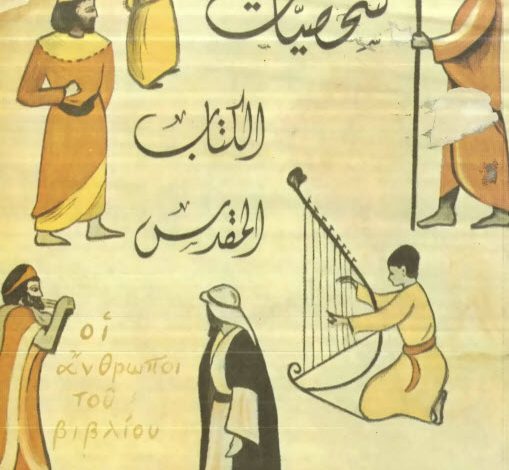 شخصيات
الكتاب
المقدس
οἱ
ἄνθρωποι
τοῦ
βιβλίου